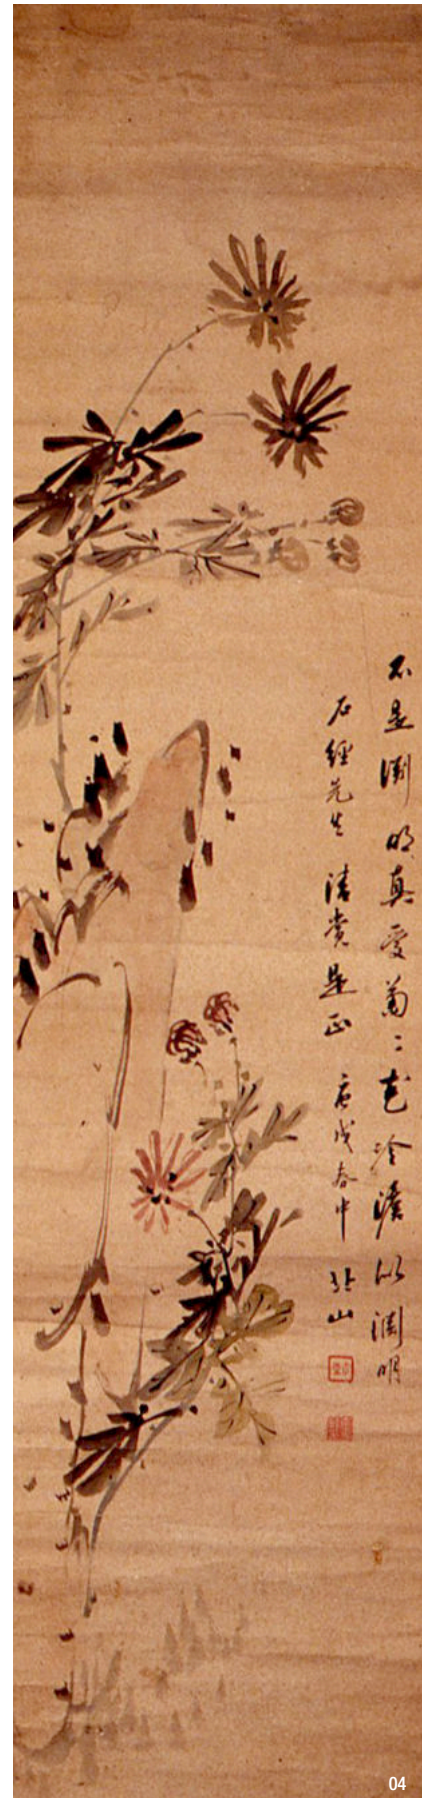 不是淵明真愛菊二花冷澹似淵明
石經先生 清賞是正 庚戌春中 北山
04